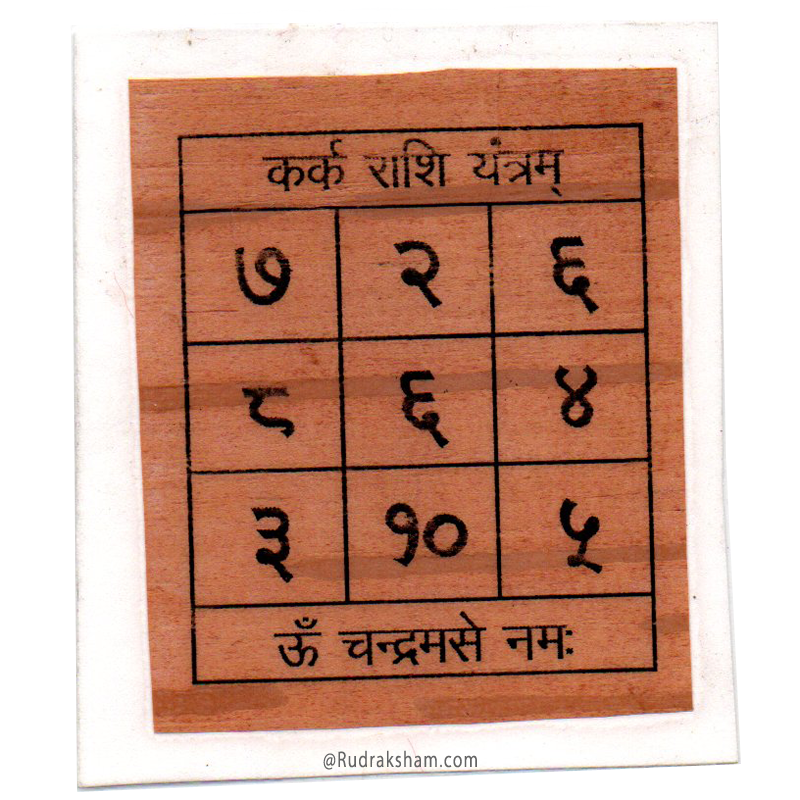 कर्क राशि यंत्रम्
७ २ ६
८ ६ ४
३ १० ५
ऊँ चन्द्रमसे नमः
@Rudraksham.com